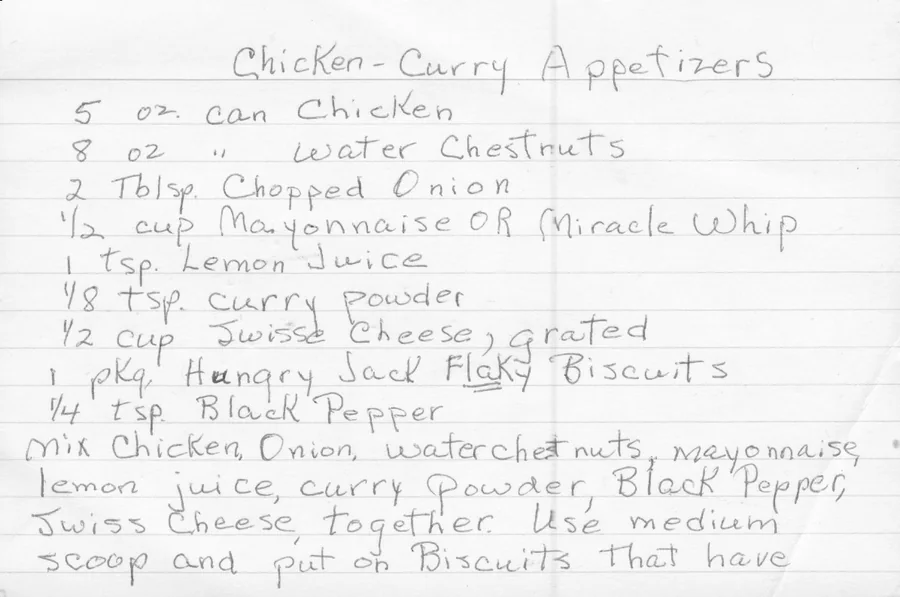 Chicken-Curry Appetizers
5 oz. can Chicken
8 oz " water Chestnuts
2 Tblsp. Chopped Onion
1/2 cup Mayonnaise OR Miracle Whip
1 tsp. Lemon Juice
1/8 tsp. curry powder
1/2 cup Swisse Cheese, grated
1 pkg. Hungry Jack Flaky Biscuits
1/4 tsp. Black Pepper
Mix Chicken, Onion, waterchestnuts, mayonnaise,
lemon juice, curry powder, Black Pepper,
Swiss Cheese, together. Use medium
scoop and put on Biscuits that have